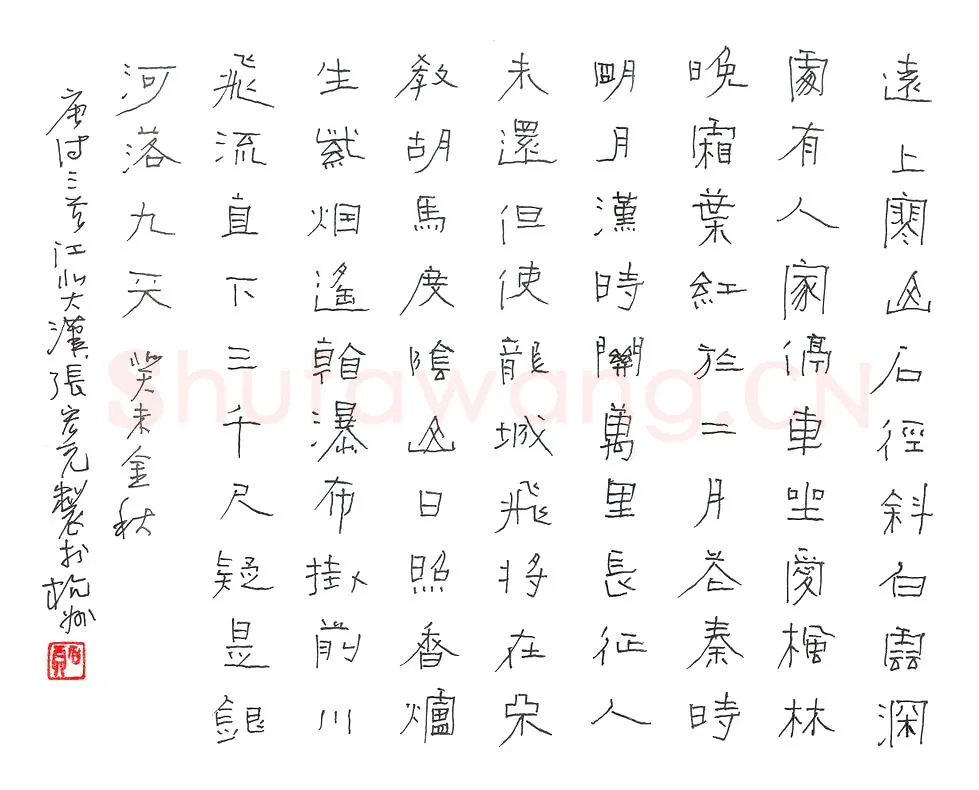 遠上寒山石徑斜白雲深
處有人家停車坐愛楓林
晚霜葉紅於二月花秦時
明月漢時關萬里長征人
未還但使龍城飛將在不
教胡馬度陰山日照香爐
生紫烟遙看瀑布掛前川
飛流直下三千尺疑是銀
河落九天 癸未金秋
唐诗三首江北大漢張宏元製於杭州
Shufawang.CN